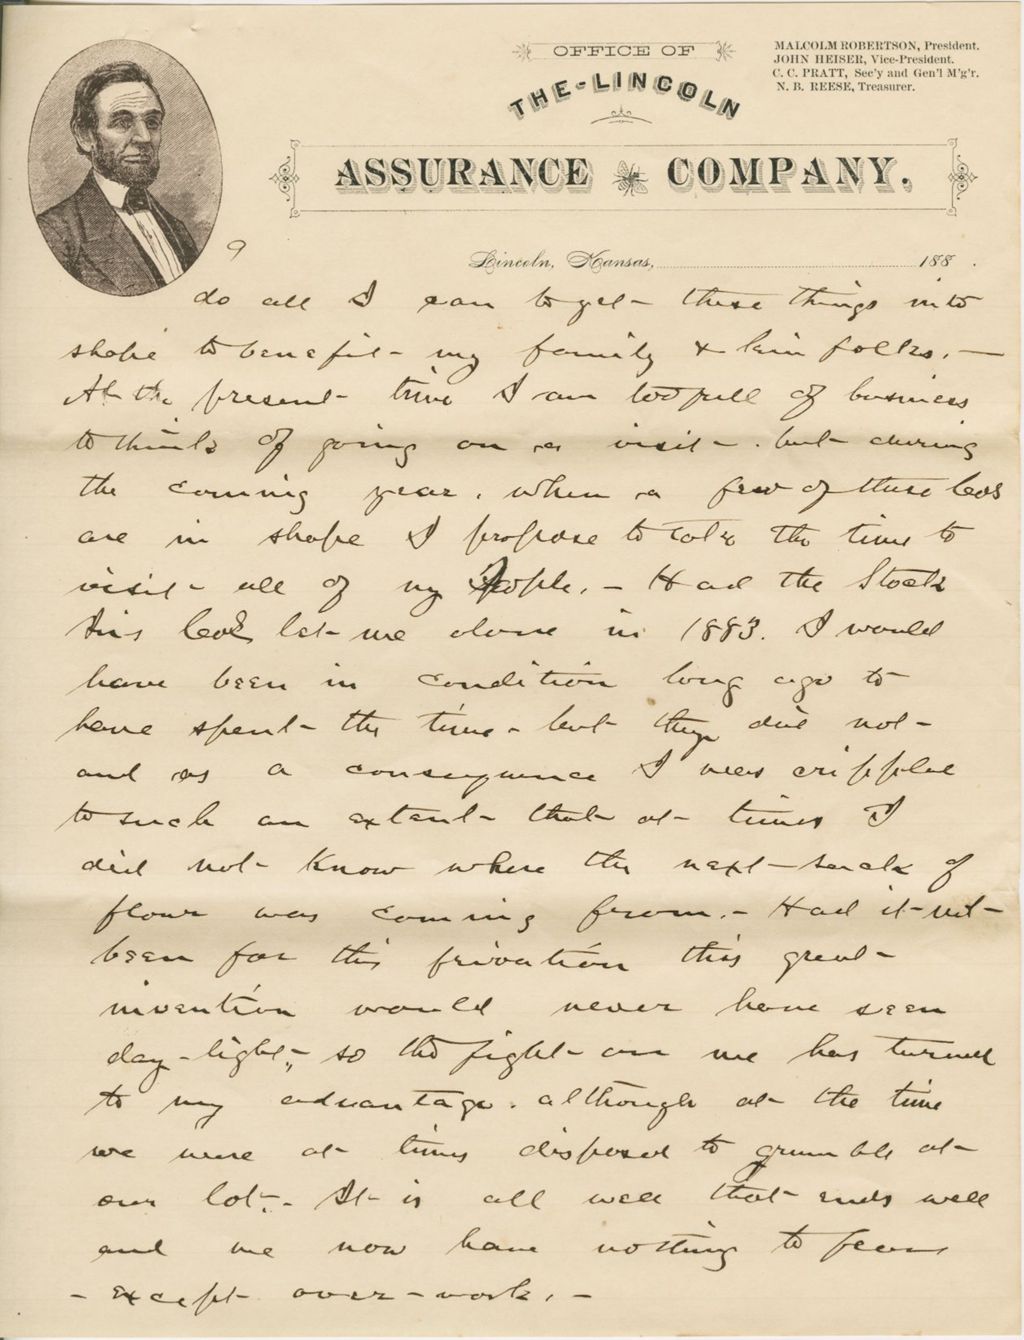 OFFICE OF
THE-LINCOLN
ASSURANCE COMPANY.
MALCOLM ROBERTSON, President.
JOHN HEISER, Vice-President.
C. C. PRATT, Sec'y and Gen'l M'g'r.
N. B. REESE, Treasurer.
9
Lincoln, Kansas, 188 .
do all I can to get these things into
shape to benefit my family & kin folks. —
At the present time I am too full of business
to think of going on a visit - but during
the coming year, when a few of these
are in shape I propose to take the time to
visit all of my People. - Had the Stock
let me alone in 1883. I would
have been in condition long ago to
have spent the time - but they did not -
and as a consequence I was crippled
to such an extent that at times I
did not know where the next sack of
flour was coming from. - Had it not
been for this privation this great
invention would never have seen
day-light, so the fight on me has turned
to my advantage. although at the time
we were at times disposed to grumble at
our lot. - It is all well that ends well
and we now have nothing to fear
- except over-work. -